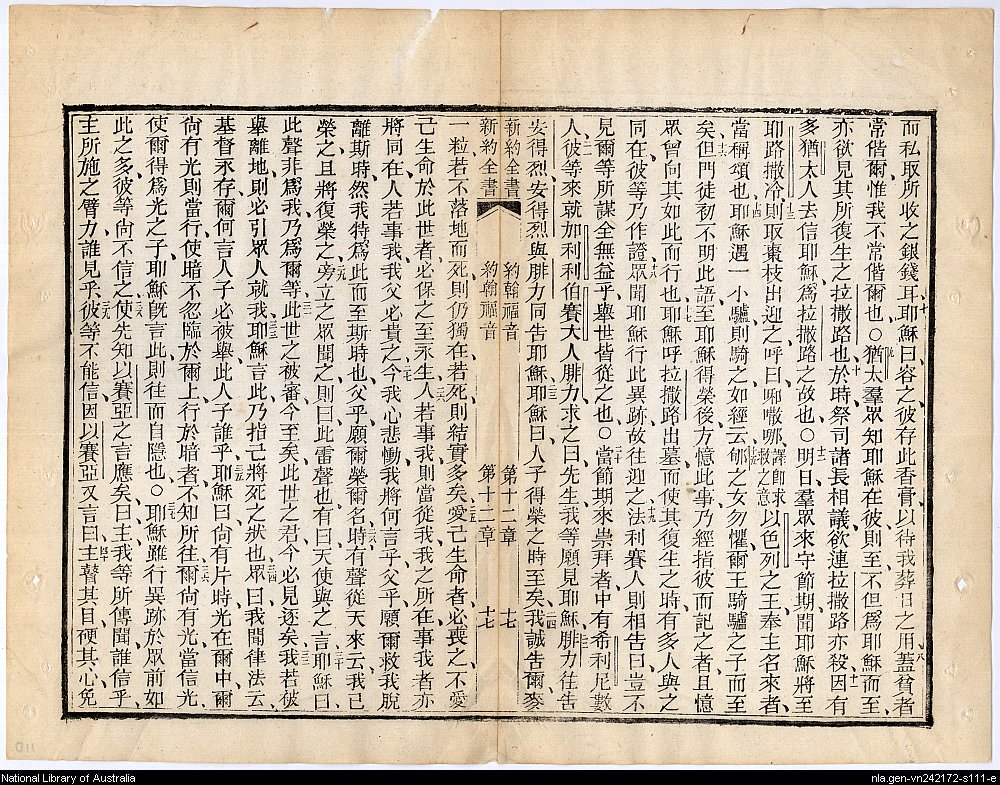 而私取所收之銀錢耳耶穌曰容之彼存此香膏以待我葬日之用蓋貧者
常偕爾惟我不常偕爾也○猶太羣眾知耶穌在彼則至不但爲耶穌而至
亦欲見其所復生之拉撒路也於時祭司諸長相議欲連拉撒路亦殺因有
多猶太人去信耶穌爲拉撒路之故也○明日羣眾來守節期聞耶穌將至
耶路撒冷則取棗枝出迎之呼曰 譯即求救之意以色列之王奉主名來者
當稱頌也耶穌遇一小驢則騎之如經云郇之女勿懼爾王騎驢之子而至
矣但門徒初不明此語至耶穌得榮後方憶此事乃經指彼而記之者且憶
眾曾向其如此而行也耶穌呼拉撒路出墓而使其復生之時有多人與之
同在彼等乃作證眾聞耶穌行此異跡故往迎之法利賽人則相告曰豈不
見爾等所謀全無益乎舉世皆從之也○當節期來崇拜者中有希利尼數
人彼等來就加利利伯賽大人腓力求之曰先生我等願見耶穌腓力往告
安得烈安得烈與腓力同告耶穌耶穌曰人子得榮之時至矣我誠告爾麥
新約全書 約翰福音 第十二章 十七
新約全書 約翰福音 第十二章 十七
一粒若不落地而死則仍獨在若死則結實多矣愛己生命者必喪之不愛
己生命於此世者必保之至永生人若事我則當從我我之所在事我者亦
將同在人若事我我父必貴之今我心悲慟我將何言乎父乎願爾救我脫
離斯時然我特爲此而至斯時也父乎願爾榮爾名時有聲從天來云我已
榮之且將復榮之旁立之眾聞之則曰此雷聲也有曰天使與之言耶穌曰
此聲非爲我乃爲爾等此世之被審今至矣此世之君今必見逐矣我若被
舉離地則必引眾人就我耶穌言此乃指己將死之狀也眾曰我聞律法云
基督永存爾何言人子必被舉此人子誰乎耶穌曰尙有片時光在爾中爾
尙有光則當行使暗不忽臨於爾上行於暗者不知所往爾尙有光當信光
使爾得爲光之子耶穌旣言此則往而自隱也○耶穌雖行異跡於眾前如
此之多彼等尙不信之使先知以賽亞之言應矣曰主我等所傳聞誰信乎
主所施之臂力誰見乎彼等不能信因以賽亞又言曰主瞽其目硬其心免
011
National Library of Australia
nla.gen-vn242172-s111-e